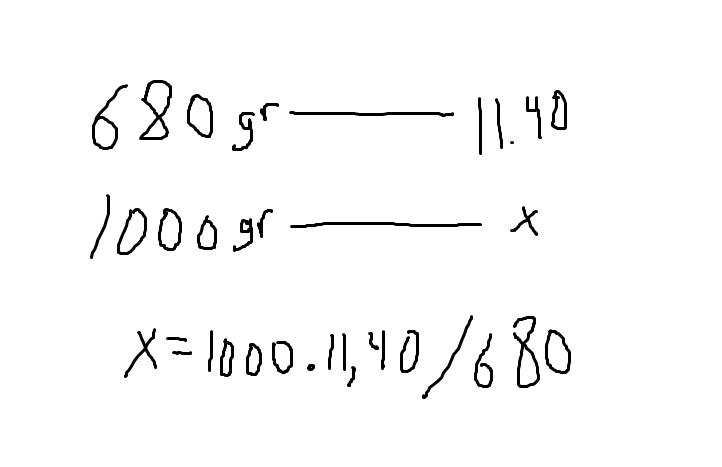 680 gr — 11.40
1000 gr — x
x = 1000 . 11,40 / 680